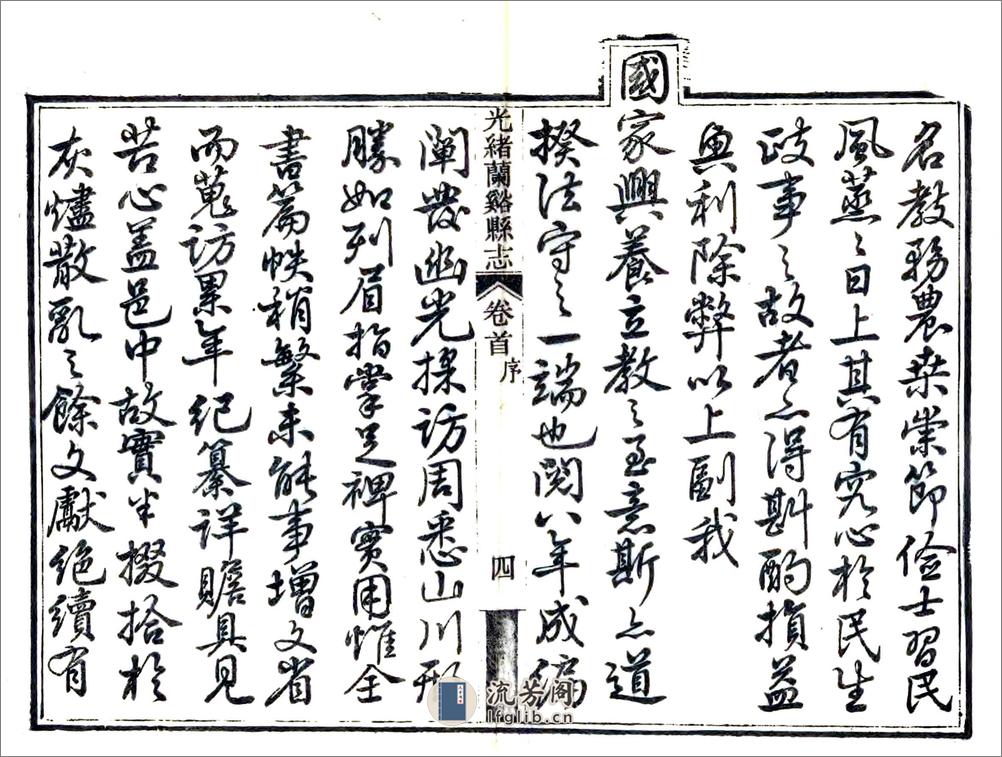 名教務農桑崇節儉士習民
風蒸〻日上其有究心於民生
政事之故者亦得斟酌損益
興利除弊以上副我
國家興養立教之至意斯亦道
揆法守之一端也閱八年成編
光緒蘭谿縣志
卷首
序
四
闡發幽光採訪周悉山川形
勝如列眉指掌足裨實用惟全
書篇帙稍繁未能事增文省
而蒐訪累年紀纂詳贍具見
苦心蓋邑中故實半掇拾於
灰燼散亂之餘文獻絕續有
流芳阁
lfglib.cn